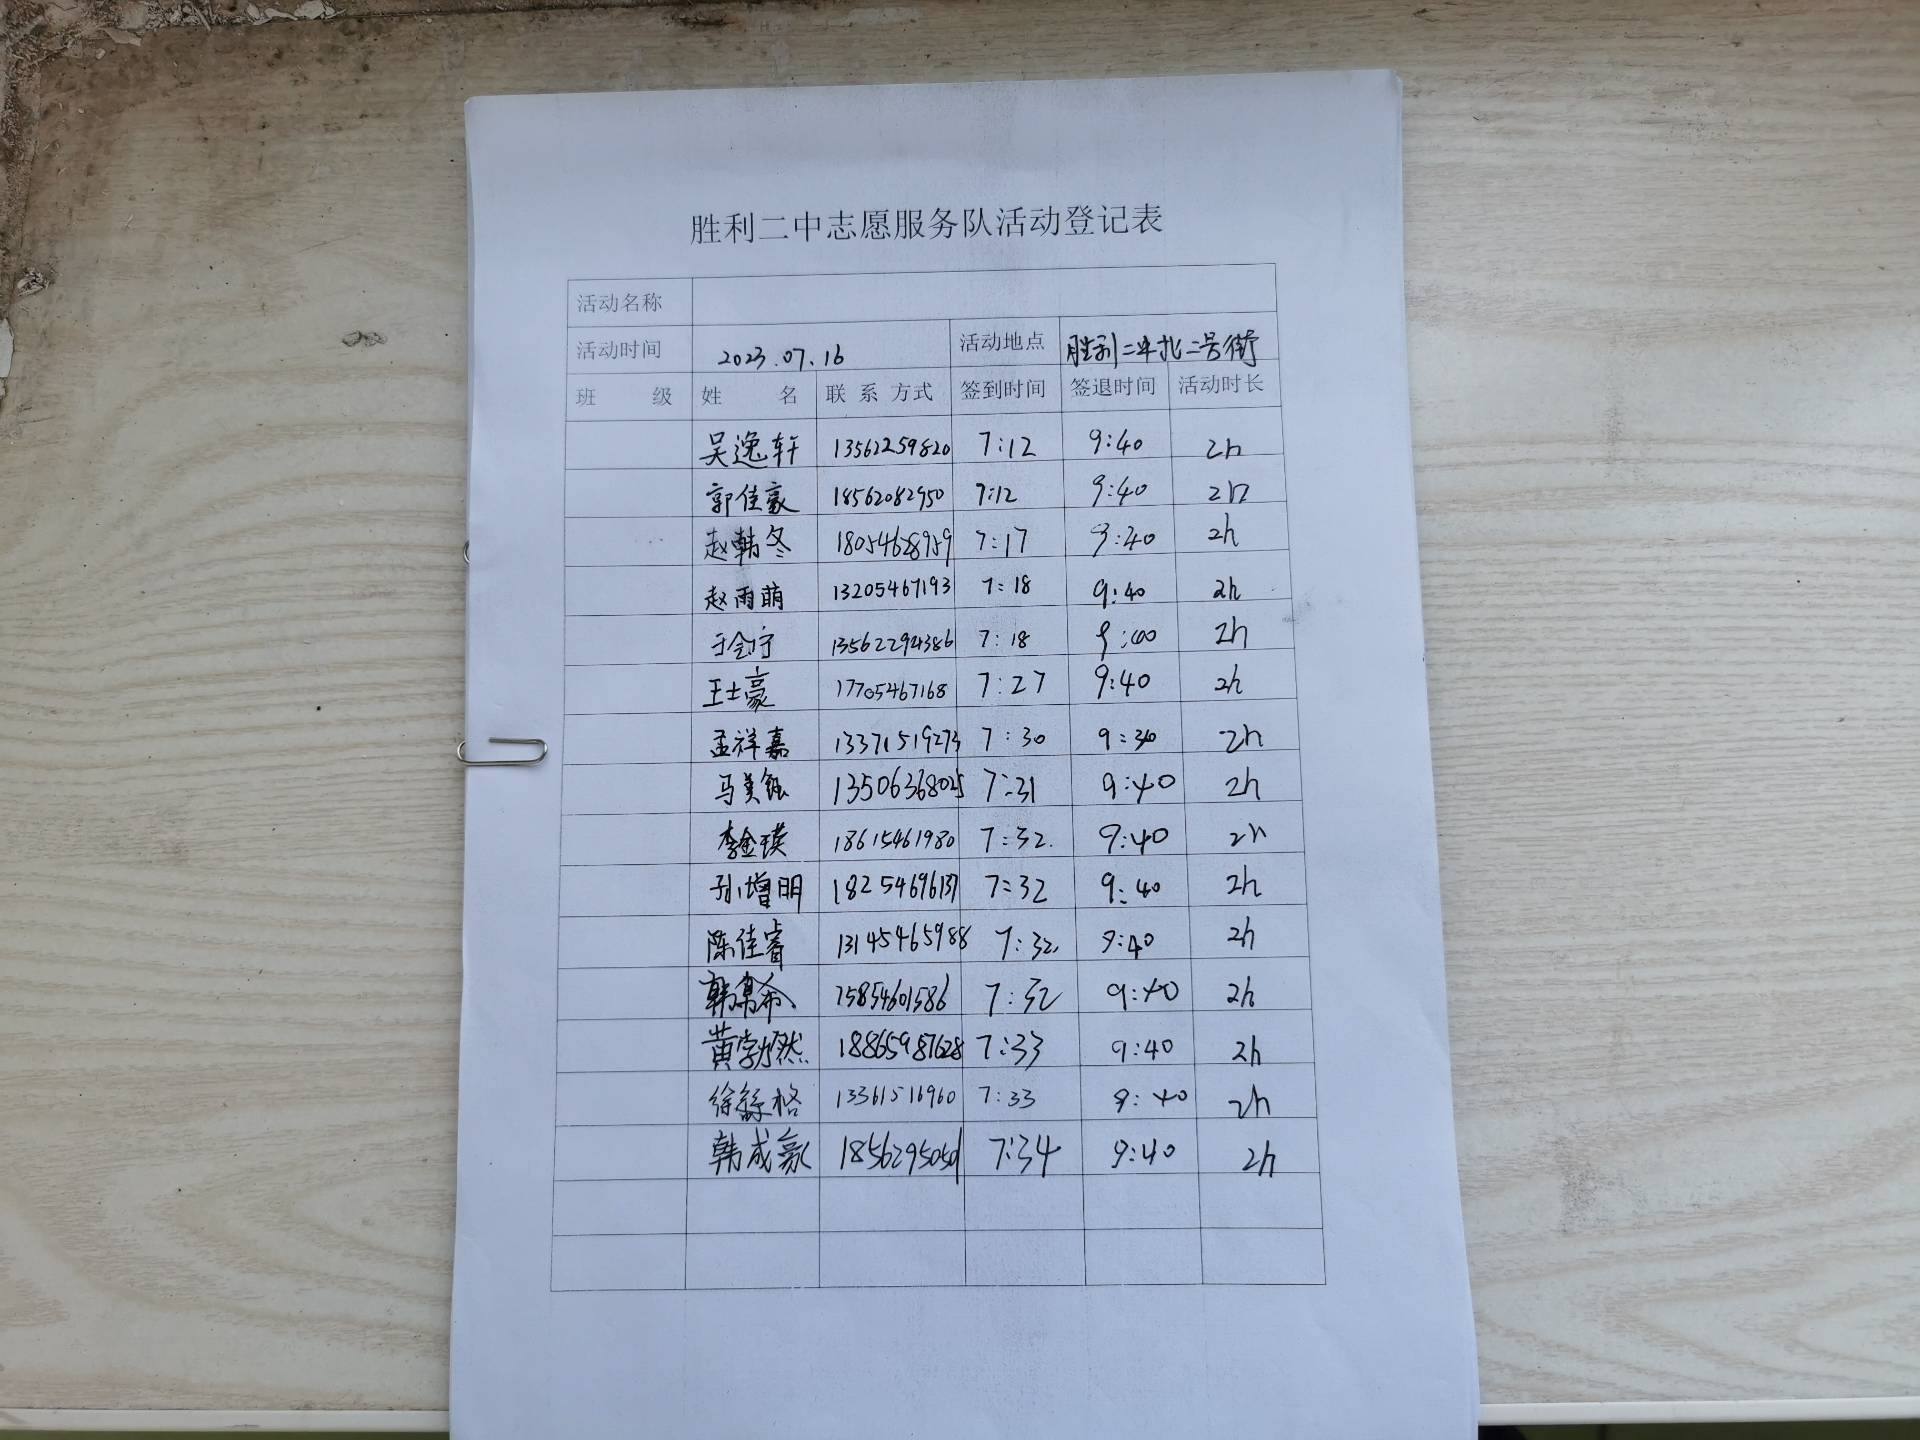 胜利二中志愿服务队活动登记表
活动名称
活动时间 2023.07.16 活动地点 胜利二中北二号街
班 级 姓 名 联系方式 签到时间 签退时间 活动时长
吴逸轩 13562259820 7:12 9:40 2h
郭佳豪 18562082950 7:12 9:40 2h
赵韩冬 18054628959 7:17 9:40 2h
赵雨萌 13205467193 7:18 9:40 2h
于会宁 13562294386 7:18 2h
王士豪 17705467168 7:27 9:40 2h
孟祥嘉 13371519273 7:30 9:30 2h
马美钰 13506368025 7:31 9:40 2h
李金瑛 18615461980 7:32 9:40 2h
孙增明 18254696137 7:32 9:40 2h
陈佳睿 13145465988 7:32 9:40 2h
韩 希 15854601586 7:32 9:40 2h
黄勃然 18865987628 7:33 9:40 2h
徐 格 13361516960 7:33 9:40 2h
韩成豪 7:34 9:40 2h